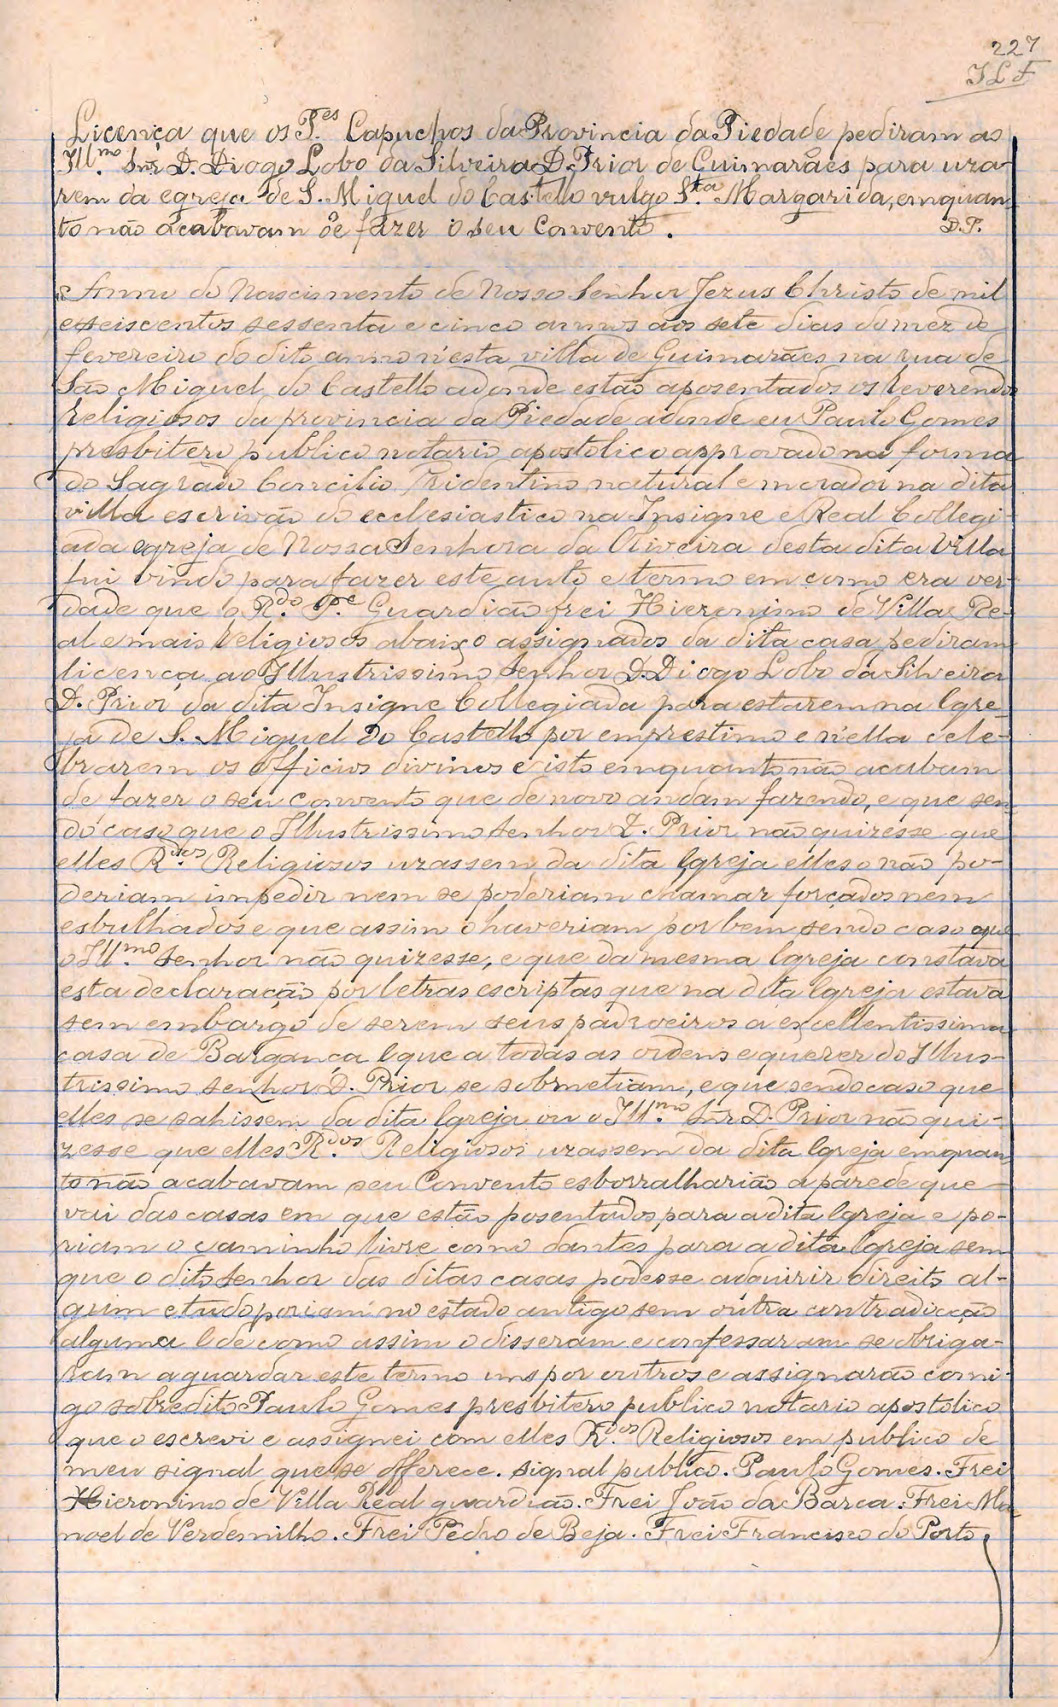 227
JLF
Licença que os P.es Capuchos da Provincia da Piedade pediram ao
Ill.mo Snr D. Diogo Lobo da Silveira D. Prior de Guimarães para uza-
rem da egreja de S. Miguel do Castello vulgo S.ta Margarida, emquan
to não acabavam de fazer o seu Convento.
D.P.
Anno do Nascimento de Nosso Senhor Jezus Christo de mil
e seiscentos sessenta e cinco annos aos sete dias do mez de
fevereiro do dito anno n'esta villa de Guimarães na rua de
São Miguel do Castello adonde estão aposentados os Reverendos
Religiosos da provincia da Piedade adonde eu Paulo Gomes
presbitero publico notario apostolico approvado na forma
do Sagrado Concilio Tridentino natural e morador na dita
villa escrivão do ecclesiastico na Insigne e Real Collegi
ada egreja de Nossa Senhora da Oliveira desta dita Villa
fui vindo para fazer este auto e termo em como era ver-
dade que o R.do P.e Guardião frei Hieronimo de Villa Re-
al e mais Religiosos abaixo assignados da dita casa pediram
licença ao Illustrissimo Senhor D. Diogo Lobo da Silveira
D. Prior da dita Insigne Collegiada para estarem na Igre-
ja de S. Miguel do Castello por emprestimo e n'ella cele-
brarem os officios divinos e isto emquanto não acabam
de fazer o seu convento que de novo andam fazendo, e que sen
do caso que o Illustrissimo Senhor D. Prior não quizesse que
elles R.dos Religiosos uzassem da dita Igreja elles o não po-
deriam impedir nem se poderiam chamar forçados nem
esbulhados e que assim o haveriam por bem sendo caso que
o Ill.mo Senhor não quizesse, e que da mesma Igreja constava
esta declaração por letras escriptas que na dita Igreja estava
sem embargo de serem seus padroeiros a excellentissima
casa de Bargança e que a todas as ordens e querer do Illus-
trissimo senhor D. Prior se sobmetiam, e que sendo caso que
elles se sahissem da dita Igreja ou o Ill.mo Snr D. Prior não qui-
zesse que elles R.dos Religiosos uzassem da dita Igreja emquan
to não acabavam seu Convento esborralharião a parede que
vai das casas em que estão posentados para a dita Igreja e po-
riam o caminho livre como dantes para a dita Igreja sem
que o dito Senhor das ditas casas podesse adquirir direito al-
gum e tudo poriam no estado antigo sem outra contradicção
alguma e de como assim o disseram e confessaram se obriga-
ram a guardar este termo uns por outros e assignarão comi-
go sobredito Paulo Gomes presbitero publico notario apostolico
que o escrevi e assignei com elles R.dos Religiosos em publico de
meu signal que se offerece. signal publico. Paulo Gomes. Frei
Hieronimo de Villa Real guardião. Frei João da Barca. Frei Ma
noel de Verdemilho. Frei Pedro de Beja. Frei Francisco do Porto